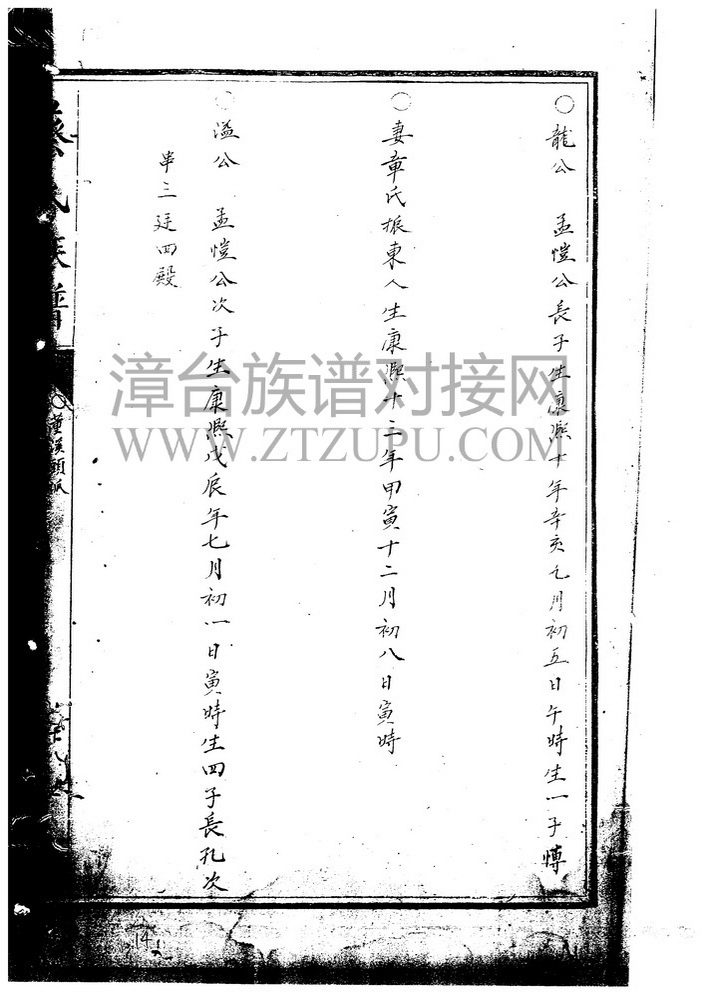 ○龍公 孟愷公長子生康熙十年辛亥九月初五日午時生一子慱
○妻章氏振東人生康熙十三年甲寅十二月初八日寅時
○溢公 孟愷公次子生康熙戊辰年七月初一日寅時生四子長孔次
串三廷四殿
氏族譜
○董溪頭派
漳台族谱对接网
WWW.ZTZUPU.COM
14